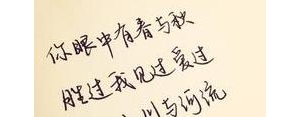 你眼中有春与秋
胜过我见过爱过
川与河流